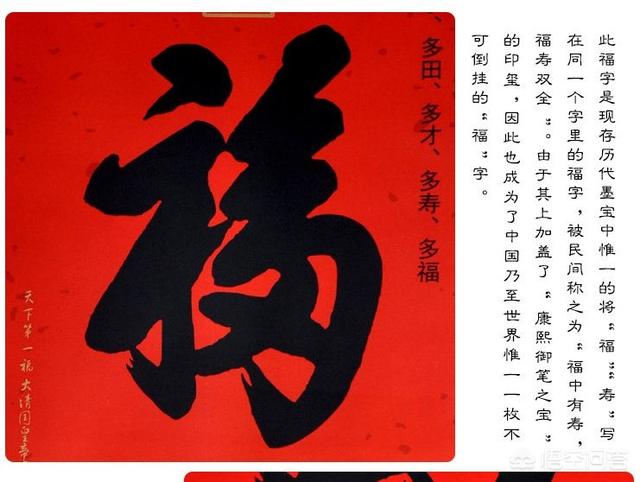 此福字是现存历代墨宝中惟一的将“福”“寿”写
在同一个字里的福字，被民间称之为“福中有寿，
福寿双全”。由于其上加盖了“康熙御笔之宝”
的印玺，因此也成为了中国乃至世界惟一一枚不
可倒挂的“福”字。
、多田、多才、多寿、多福
福
天下第一福 大清国皇帝
悟空问答